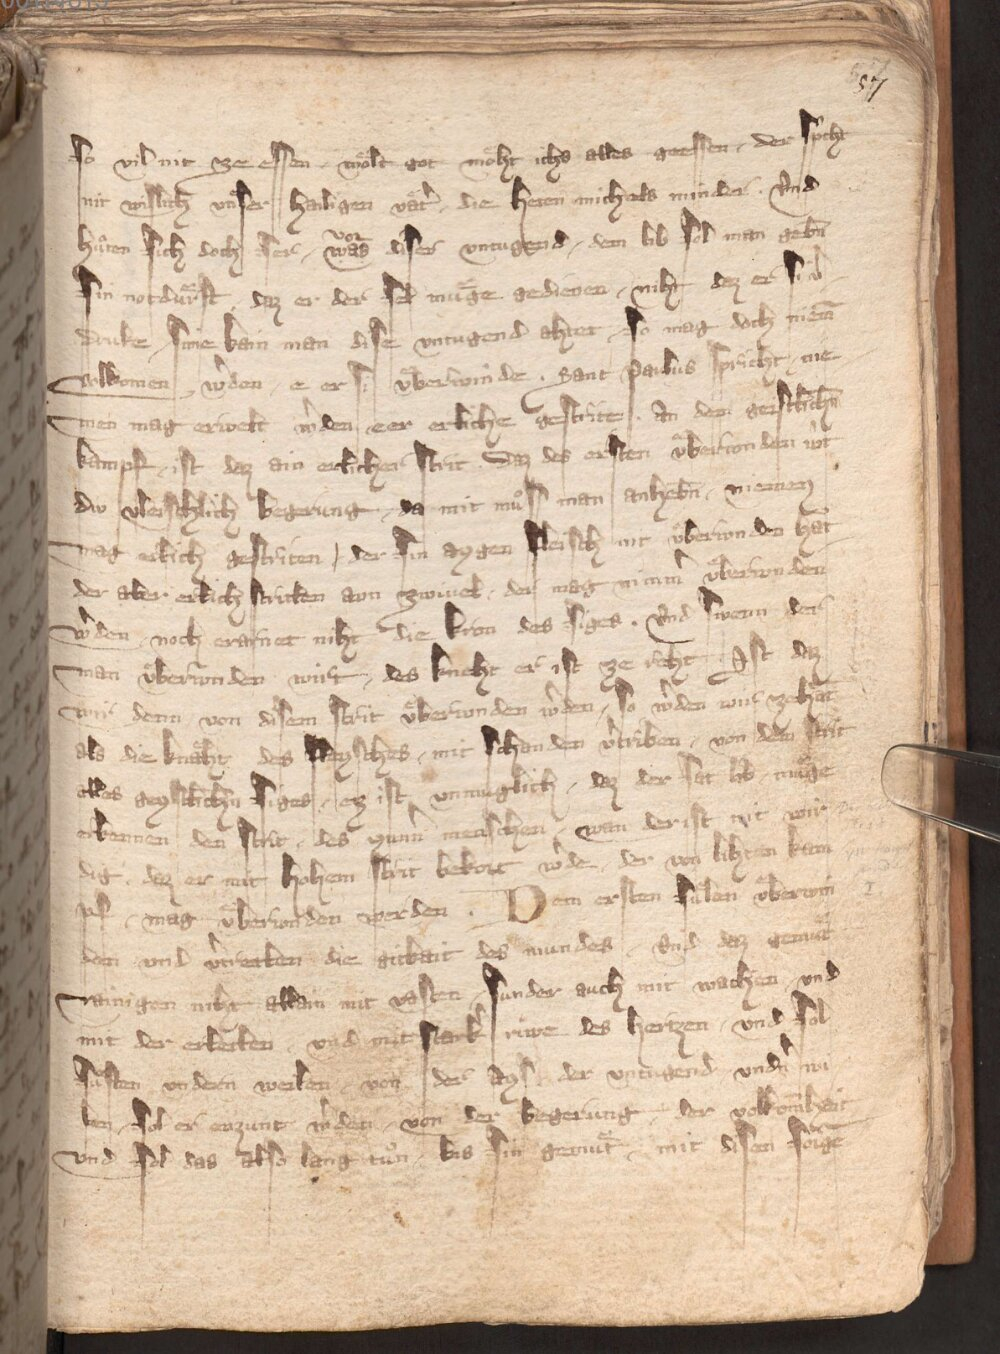 57
so vil nit ze essen . wolt got moͤht ichs alles geessen . der spͥcht
nit wislich vnser hailigen vaͤtˀ . die heten michels minder . vnd
huͤten sich doch ser . vor was diser vntugend . dem lib sol man gebn̄
sin notdurft . daz er der sel muͤge gedienen . niht daz er si
druke . swie klain man dise vntugend ahtet . so mag doch niem̄
volkomen wˀden . e er si uͤberwinde . Sant Paulus spricht . nie
men mag erwelt wˀden . e er erliche gestrite . an dem geistlichn̄
kampf . ist daz ain erlicher strit . daz des ersten uͤberwonden wˀt
div vleischlich begerung . da mit muͦss man anhebn̄ . niemen
mag erlich gestriten . der sin aygen fleisch nit uͤberwonden hat
der aber erlich striten aun zwiuel . der mag nimmˀ uͤberwonden
wˀden . noch erarnet niht die kron des siges . vnd swenn der
man uͤberwonden wirt . des kneht er ist ze reht . Ist daz
wir denn von disem strit uͤberwonden wˀden . so wˀden wir zehant
als die knaͤht des flaysches . mit schanden vˀtriben . von dem strit
alles geystlichn̄ siges . ez ist vnmuglich . daz der sat lib . muͤge
erkennen den strit . des ynnˀn menschen . wan der ist nit wir
dig . daz er mit hohem strit bekort wˀde . der von lihten kam
pf . mag uͤberwonden werden . Dem ersten sulen uͤberwin
den vnd vˀtreiben die gitkait des mundes . vnd daz gemuͤt
rainigen niht allain mit vasten . sunder auch mit wachen . vnd
mit der erbeiten . vnd mit starkˀ ruwe des hertzen . vnd sol
sussen vndern weilen . von der ays . der vntugend vndˀ wi
len . sol er enzunt wˀden . von der begerung . der volkomheit
vnd sol das also lang tuͦn . bis sin gemuͤt . mit disen sorgē